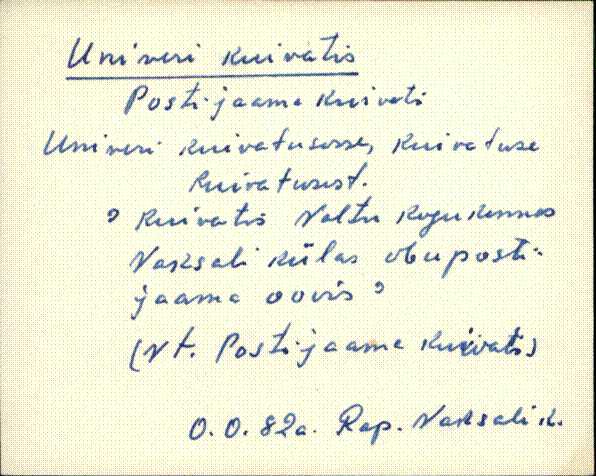 Univeri kuivatis
Postijaama kuivati
Univeri kuivatusesse, kuivatuse
kuivatusest.
" kuivatis Valtu kogukonnas
Vaksali külas obuposti-
jaama oovis "
(vt. Postijaama kuivatis)
O. O. 82a. Rap. Vaksali k.